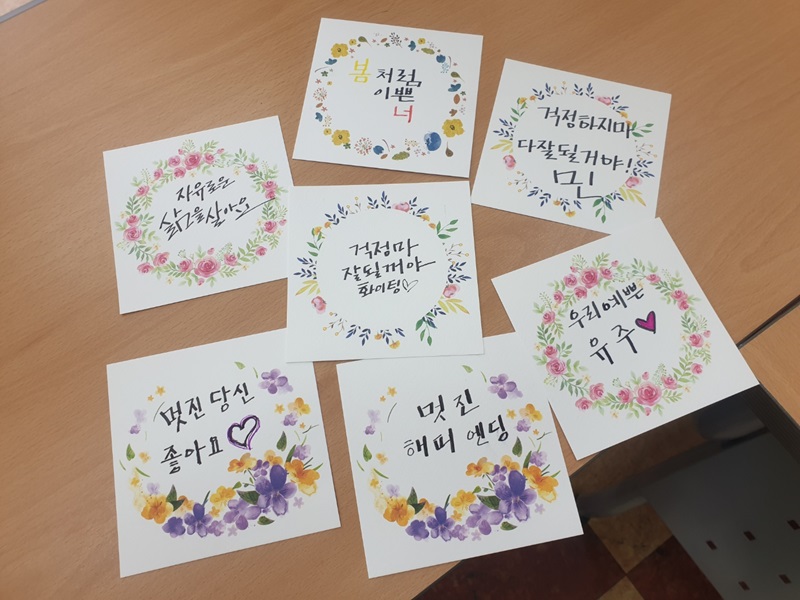 봄처럼
이쁜
너
걱정하지마
다잘될거야!
민
자유로운
삶을살아요
걱정마
잘될꺼야
화이팅♡
우리예쁜
유주♥
멋진당신
좋아요♡
멋진
해피엔딩